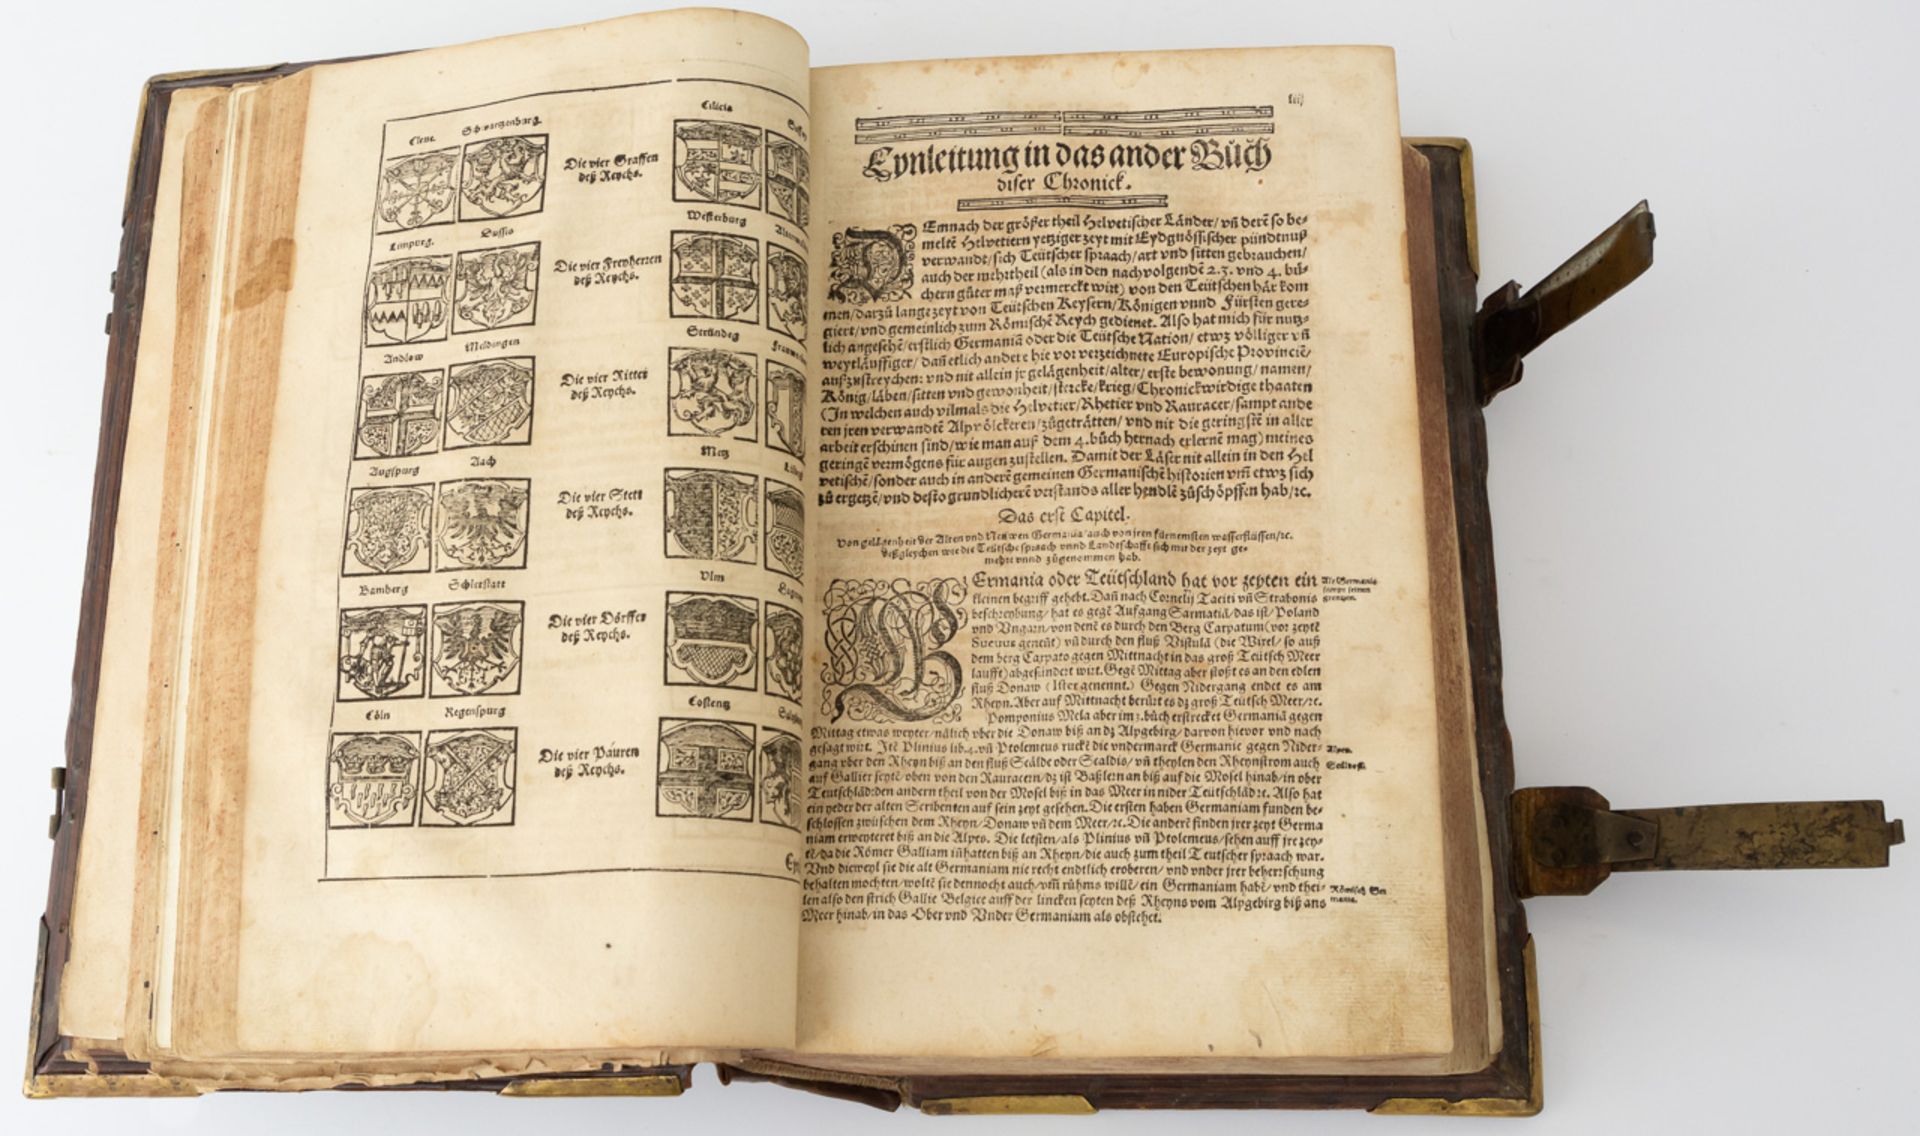 Cilicia
Cleve. Schwartzenburg.
Die vier Graffen
deß Reychs.
Westerburg
Limpurg. Tussis
Die vier Freyherren
deß Reychs.
Andlow Meldingen
Stründeg
Die vier Ritter
deß Reychs.
Augspurg Aach
Metz
Die vier Stett
deß Reychs.
Bamberg Schletstatt
Vlm
Die vier Dörffer
deß Reychs.
Cöln Regenspurg
Costentz
Die vier Pauren
deß Reychs.
Eynleitung in das ander Bůch
diser Chronick.
DEmnach der größer theil Helvetischer Länder/ vñ derẽ so be-
meltẽ Helvetiern yetziger zeyt mit Eydgnössischer pündtnuß
verwandt/ sich Teütscher spraach/ art vnd sitten gebrauchen/
auch der mehrtheil (als in den nachvolgendẽ 2.3. vnd 4. bü-
chern gůter maß vermerckt wirt) von den Teütschen här kom
men/ darzů lange zeyt von Teütschen Keysern/ Königen vnnd Fürsten gere-
giert/ vnd gemeinlich zum Römischẽ Reych gedienet. Also hat mich für nutz-
lich angesehẽ/ erstlich Germaniã oder die Teütsche Nation/ etwz völliger vñ
weytläuffiger/ dañ etlich andere hie vor verzeichnete Europische Provinciẽ/
außzustreychen: vnd nit allein jr gelägenheit/ alter/ erste bewonung/ namen/
König/ läben/ sitten vnd gewonheit/ stercke/ krieg/ Chronickwirdige thaaten
(In welchen auch vilmals die Helvetier/ Rhetier vnd Rauracer/ sampt ande
ren jren verwandtẽ Alpvölckeren/ zůgeträtten/ vnd nit die geringstẽ in aller
arbeit erschinen sind/ wie man auß dem 4. bůch hernach erlernẽ mag) meines
geringẽ vermögens für augen zustellen. Damit der Läser nit allein in den Hel
vetischẽ/ sonder auch in anderẽ gemeinen Germanischẽ historien vñ etwz sich
zů ergetzẽ/ vnd desto grundlicherẽ verstands aller hendlẽ zůschöpffen hab/ ꝛc.
Das erst Capitel.
Von gelägenheit der Alten vnd Neüwen Germania/ auch von jren fürnemsten wasserflüssen/ ꝛc.
deßgleychen wie die Teütsche spraach vnnd Landschafft sich mit der zeyt ge-
mehrt vnnd zůgenommen hab.
GErmania oder Teütschland hat vor zeyten ein
kleinen begriff gehebt. Dañ nach Cornelij Taciti vñ Strabonis
beschreybung/ hat es gegẽ Aufgang Sarmatiã/ das ist/ Poland
vnd Vngarn/ von denẽ es durch den Berg Carpatum (vor zeytẽ
Sueuus genẽnt) vñ durch den fluß Vistulã (die Wixel/ so auß
dem berg Carpato gegen Mittnacht in das groß Teütsch Meer
laufft) abgesündert wirt. Gegẽ Mittag aber stoßt es an den edlen
fluß Donaw (Ister genennt.) Gegen Nidergang endet es am
Rheyn. Aber auf Mittnacht berürt es dz groß Teütsch Meer/ ꝛc.
Pomponius Mela aber im 3. bůch erstrecket Germaniã gegen
Mittag etwas weyter/ nãlich vber die Donaw biß an dz Alpgebirg/ darvon hievor vnd nach
gesagt wirt. Itẽ Plinius lib. 4. vñ Ptolemeus ruckẽ die vndermarck Germanie gegen Nider-
gang vber den Rheyn biß an den fluß Scälde oder Scaldis/ vñ theylen den Rheynstrom auch
auf Gallier seytẽ/ oben von den Rauracern/ dz ist Baßlern an biß auf die Mosel hinab/ in ober
Teütschlãd: den andern theil von der Mosel biß in das Meer in nider Teütschlãd ꝛc. Also hat
ein yeder der alten Scribenten auf sein zeyt gesehen. Die ersten haben Germaniam funden be-
schlossen zwüschen dem Rheyn/ Donaw vñ dem Meer/ ꝛc. Die anderẽ finden jrer zeyt Germa
niam erweyteret biß an die Alpes. Die letsten/ als Plinius vñ Ptolemeus/ sehen auff jre zey-
tẽ/ da die Römer Galliam iñhatten biß an Rheyn/ die auch zum theil Teutscher spraach war.
Vnd dieweyl sie die alt Germaniam nie recht endtlich eroberen/ vnd vnder jrer beherrschung
behalten mochten/ woltẽ sie dennocht auch/ vm̃ rühms willẽ/ ein Germaniam habẽ/ vnd thei-
len also den strich Gallie Belgice auff der lincken seyten deß Rheyns vom Alpgebirg biß ans
Meer hinab/ in das Ober vnd Vnder Germaniam als obstehet.
Alpes.
Römisch Ger
mania.